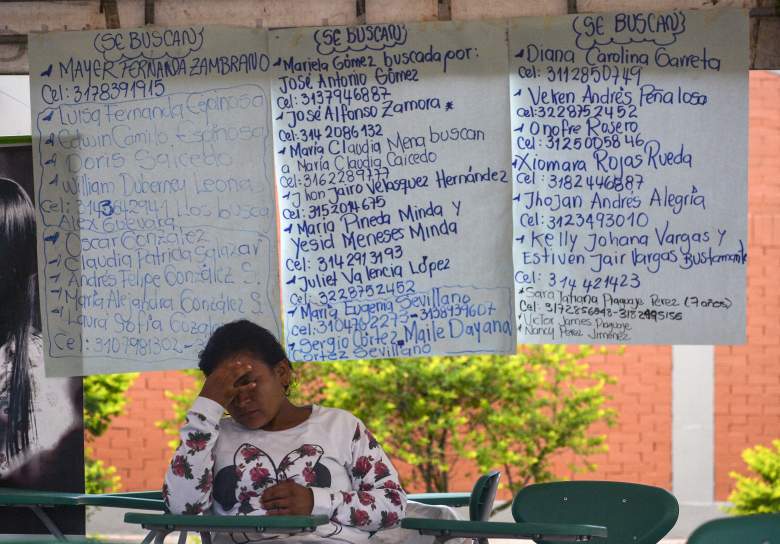 (SE BUSCAN)
MAYER FERNANDA ZAMBRANO
Cel: 3178391915
Luisa Fernanda Espinosa
Edwin Camilo Espinosa
Doris Saicedo
William Duberney Leonas
Alex Guevara
Oscar González
Claudia Patricia Salazar
Andrés Felipe González S.
María Alejandra González S.
Laura Sofía
(SE BUSCAN)
Mariela Gómez buscada por:
José Antonio Gómez
Cel: 3137946887
José Alfonso Zamora
Cel: 3142086132
María Claudia Mena buscan
a María Claudia Caicedo
Cel: 3162289777
Jhon Jairo Velasquez Hernández
Cel: 3152014675
María Pineda Minda y
Yesid Meneses Minda
Cel: 3142913193
Juliet Valencia López
Cel: 3228752452
María Eugenia Sevillano
Sergio Cortez Maile Dayana
Cortez Sevillano
(SE BUSCAN)
Diana Carolina Garreta
Cel: 3112850749
Veken Andrés Peñalosa
Cel: 3228752452
Onofre Rosero
Cel: 3125005846
Xiomara Rojas Rueda
Cel: 3182446887
Jhojan Andrés Alegría
Cel: 3123493010
Kelly Johana Vargas y
Estiven Jair Vargas Bustamante
Cel: 314421423
Sara Tatiana Perez (7 años)
Victor James
Nancy Perez Jiménez